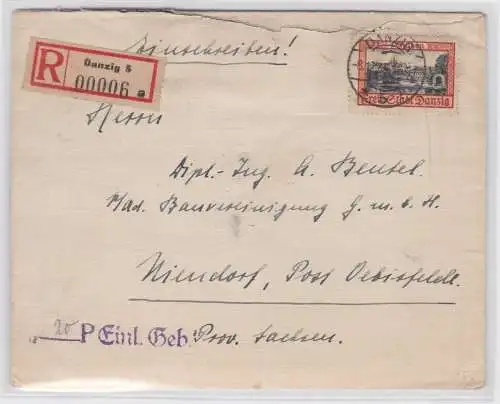 Einschreiben!
R Danzig 5
00006 a
DANZIG
5
Freie Stadt Danzig
Herrn
Dipl.-Ing. A. Beusel.
Bauvereinigung G. m. b. H.
Niendorf, Post Oebisfelde.
20 P Einl. Geb. Prov. Sachsen.